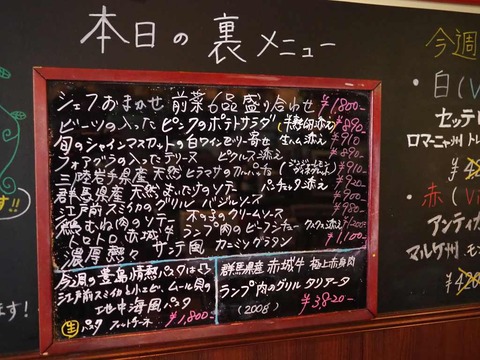 本日の裏メニュー
シェフおまかせ 前菜6品盛り合わせ ¥1800-
ビーツの入ったピンクのポテトサラダ(半熟卵添え) ¥890-
旬のシャインマスカットの白ワインゼリー寄せ 生ハム添え ¥910
フォアグラの入ったテリーヌ ピクルス添え ¥890-
三陸岩手県産 天然 ヒラマサのカルパッチョ ¥910-
群馬県産 天然 まいたけのソテー パンチェッタ添え ¥920-
江戸前スミイカのグリル バジルソース ¥900-
鶏むね肉のソテー 木の子のクリームソース ¥980-
ビストロ 赤城牛 ランプ肉のビーフシチュー クスクス添え
濃厚熱々 サンテ風 カニミソグラタン ¥1,100-
今週の豊島情熱パスタは
江戸前スミイカと小エビ、ムール貝の
地中海風パスタ
生パスタ フィットチーネ ¥1,800-
群馬県産 赤城牛 極上赤身肉
ランプ肉のグリル タリアータ
(200g) ¥3,820-
今週
・白(Vi
セッテ
ロマーニャ州 ト
・赤(Vi
アンティ
マルケ州 モン
ます!